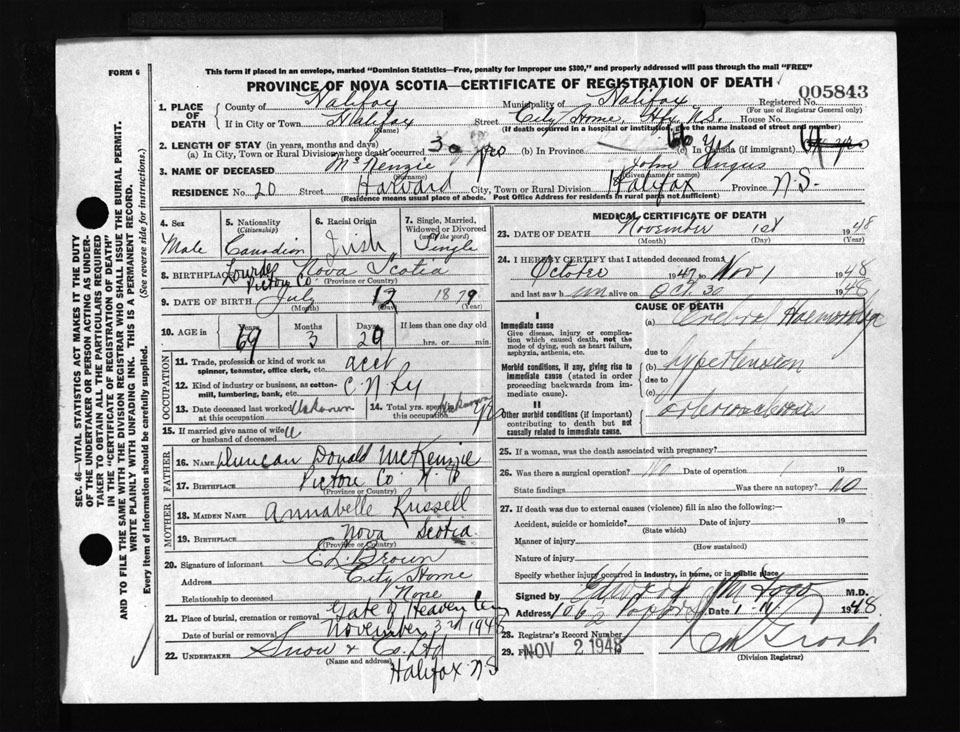 FORM 6
This form if placed in an envelope, marked "Dominion Statistics—Free, penalty for improper use $300," and properly addressed will pass through the mail "FREE"
PROVINCE OF NOVA SCOTIA—CERTIFICATE OF REGISTRATION OF DEATH
005843
1. PLACE OF DEATH County of Halifax Municipality of Halifax Registered No.
(For use of Registrar General only)
If in City or Town Halifax Street City Home, Hfx N.S. House No.
(Name) (If death occurred in a hospital or institution, give the name instead of street and number)
2. LENGTH OF STAY (in years, months and days)
(a) In City, Town or Rural Division where death occurred 30 yrs (b) In Province 66 Y (c) In Canada (if immigrant)
3. NAME OF DECEASED McKenzie John Angus
(Surname) (Given name or names)
RESIDENCE No. 20 Street Harvard City, Town or Rural Division Halifax Province N.S.
(Residence means usual place of abode. Post Office Address for residents in rural parts not sufficient)
4. Sex Male
5. Nationality (Citizenship) Canadian
6. Racial Origin Irish
7. Single, Married, Widowed or Divorced (write the word) Single
8. BIRTHPLACE Lourdes Nova Scotia
Pictou Co. (Province or Country)
9. DATE OF BIRTH July 12 1879
(Month) (Day) (Year)
10. AGE in Years Months Days If less than one day old
69 3 20 hrs. or min.
OCCUPATION
11. Trade, profession or kind of work as spinner, teamster, office clerk, etc. acct
12. Kind of industry or business, as cotton-mill, lumbering, bank, etc. C. N. Ry
13. Date deceased last worked at this occupation Unknown
14. Total yrs. spent in this occupation Unknown
15. If married give name of wife or husband of deceased
FATHER
16. NAME Duncan Donald McKenzie
17. BIRTHPLACE Pictou Co. N.S
(Province or Country)
MOTHER
18. MAIDEN NAME Annabelle Russell
19. BIRTHPLACE Nova Scotia
(Province or Country)
20. Signature of informant C. L. Brown
Address City Home
Relationship to deceased None
21. Place of burial, cremation or removal Gate of Heaven Cem
Date of burial or removal November 3rd 1948
22. UNDERTAKER Snow & Co. Ltd
(Name and address)
Halifax N.S
MEDICAL CERTIFICATE OF DEATH
23. DATE OF DEATH November 1st 1948
(Month) (Day) (Year)
24. I HEREBY CERTIFY that I attended deceased from
October 1947 to Nov 1 1948
and last saw h im alive on Oct 30 1948
CAUSE OF DEATH
I
Immediate cause
Give disease, injury or complication which caused death, not the mode of dying, such as heart failure, asphyxia, asthenia, etc.
(a) Cerebral Haemorrhage
due to
Morbid conditions, if any, giving rise to immediate cause (stated in order proceeding backwards from immediate cause).
(b) Hypertension
due to
(c) arteriosclerosis
II
Other morbid conditions (if important) contributing to death but not causally related to immediate cause.
25. If a woman, was the death associated with pregnancy?
26. Was there a surgical operation? No Date of operation 19
State findings Was there an autopsy? No
27. If death was due to external causes (violence) fill in also the following:—
Accident, suicide or homicide? Date of injury 19
(State which)
Manner of injury
(How sustained)
Nature of injury
Specify whether injury occurred in industry, in home, or in public place
Signed by M.D.
Address Date 1948
28. Registrar's Record Number
29. NOV 2 1948
(Division Registrar)
SEC. 46—VITAL STATISTICS ACT MAKES IT THE DUTY
OF THE UNDERTAKER OR PERSON ACTING AS UNDER-
TAKER TO OBTAIN ALL THE PARTICULARS REQUIRED
IN THE "CERTIFICATE OF REGISTRATION OF DEATH"
AND TO FILE THE SAME WITH THE DIVISION REGISTRAR WHO SHALL ISSUE THE BURIAL PERMIT.
WRITE PLAINLY WITH UNFADING INK. THIS IS A PERMANENT RECORD.
Every item of information should be carefully supplied. (See reverse side for instructions.)